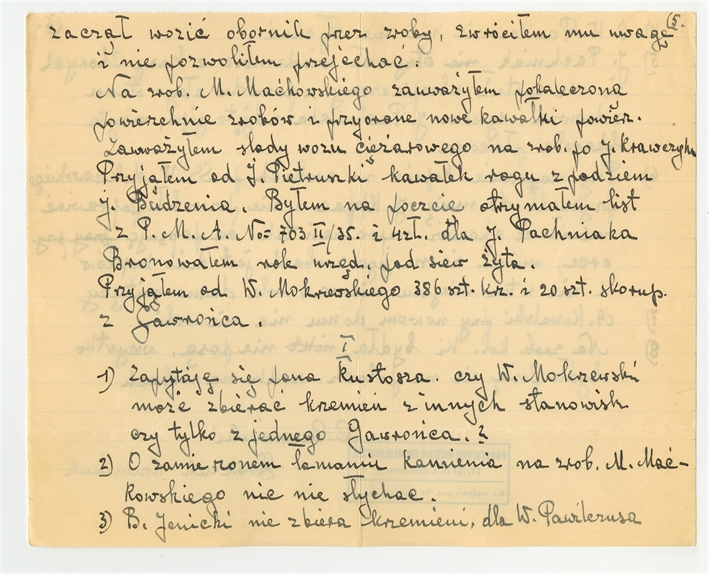 5.
zaczął wozić obornik przez zroby, zwróciłem mu uwagę
i nie pozwoliłem przejechać.
Na zrob. M. Maćkowskiego zauważyłem pokaleczoną
powierzchnie zrobów i przyorane nowe kawałki powierz.
Zauważyłem ślady wozu ciężarowego na zrob. po J. Krawczyku
Przyjąłem od J. Pietruszki kawałek rogu z podziem
J. Budzenia. Byłem na poczcie otrzymałem list
z P. M. A. No= 703 II/35. i 4zł. dla J. Pachniaka
Bronowałem rok urzęd. pod siew żyta.
Przyjąłem od W. Mokrzewskiego 386 szt. krz. i 20 szt. skorup.
z Gawrońca.
I
1) Zapytaję się pana kustosza. czy W. Mokrzewski
może zbierać krzemień z innych stanowisk
czy tylko z jednego Gawrońca. ?
2) O zamierzonem łamaniu kamienia na zrob. M. Mać-
kowskiego nic nie słychac.
3) B. Jenicki nie zbiera krzemieni, dla W. Pawilczusa